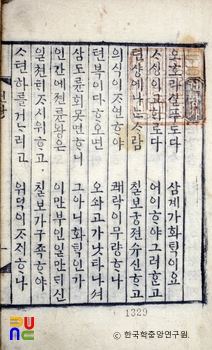 오호라 슬프도다 삼계가 화턱이요
ᄉᆞᄉᆡᆼ이 고ᄒᆡ로다 어이ᄒᆞ야 그러ᄒᆞᆫ고
텬상에 나ᄂᆞᆫ 사람 칠보궁뎐 슈신ᄒᆞ고
의식이 ᄌᆞ연ᄒᆞ야 쾌락이 무량ᄒᆞ나
텬복이 다ᄒᆞ오면 오쇠고가 낫타나셔
삼도륜회 못 면ᄒᆞ니 그 아니 화턱인가
인간에 젼륜왕은 이만부인 일만ᄃᆡ신
일쳔ᄌᆞ 시위ᄒᆞ고 칠보가 구족ᄒᆞ야
ᄉᆞ텬하를 거ᄂᆞ리고 위덕이 ᄌᆞᄌᆡᄒᆞ나
1329
ⓒ한국학중앙연구원.